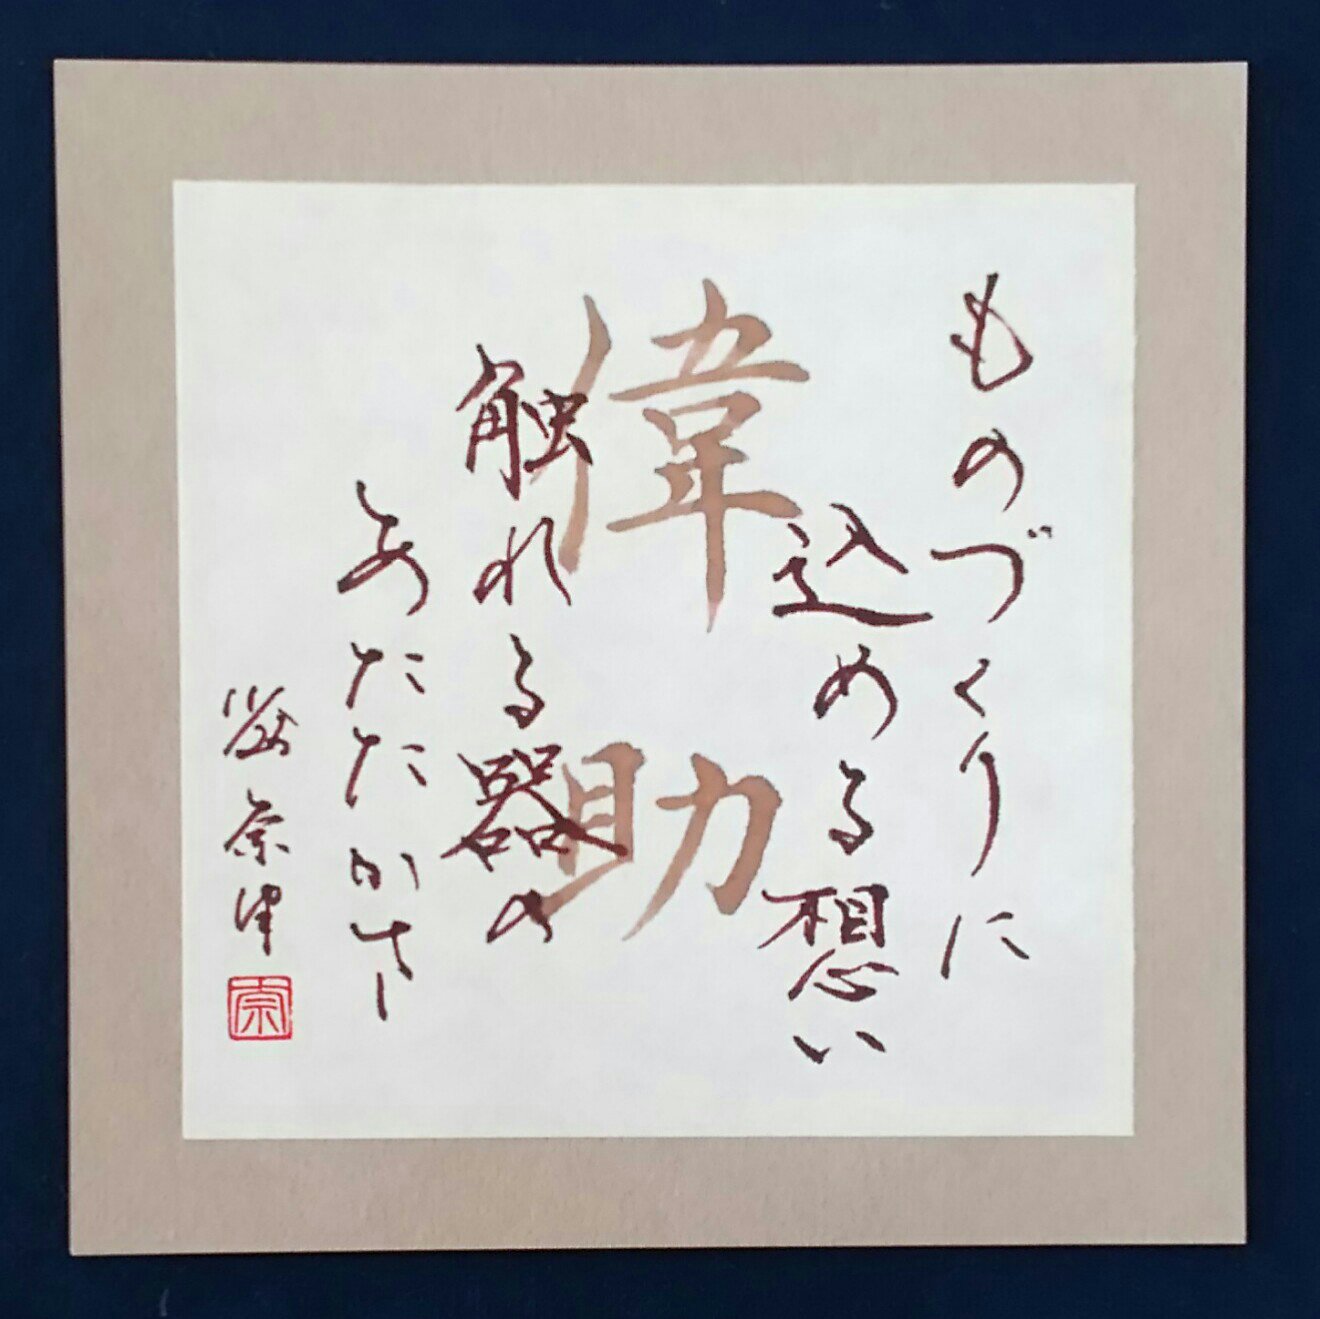 ものづくりに
込める想い
偉助
触れる器の
あたたかさ
奈津
奈